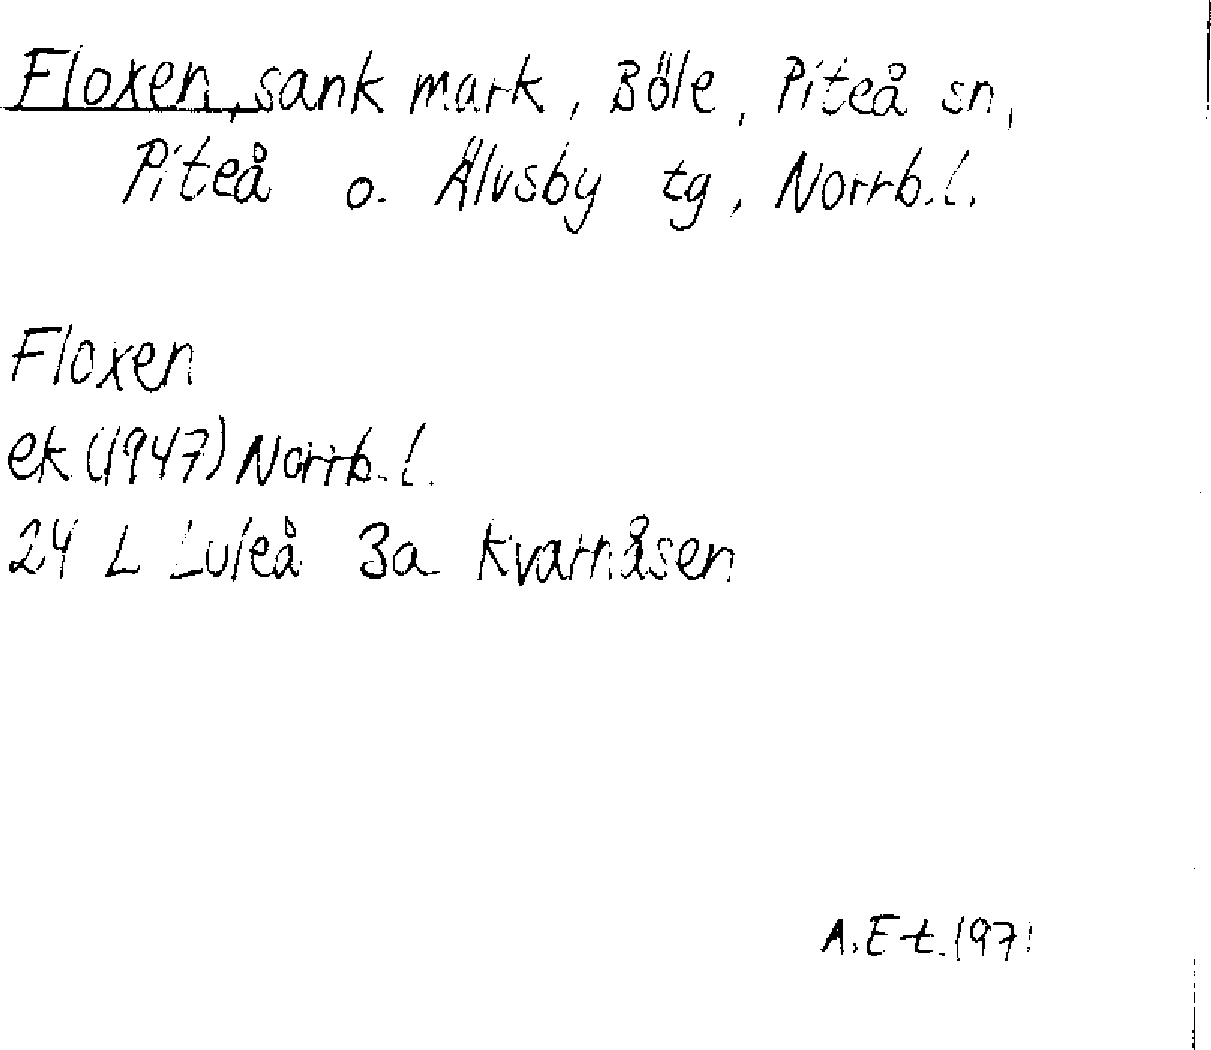 Floxen, sank mark, Böle, Piteå sn,
Piteå o. Älvsby tg, Norrb.l.
Floxen
ek (1947) Norrb.l.
24 L Luleå 3a Kvarnåsen
A. E-t. 1971